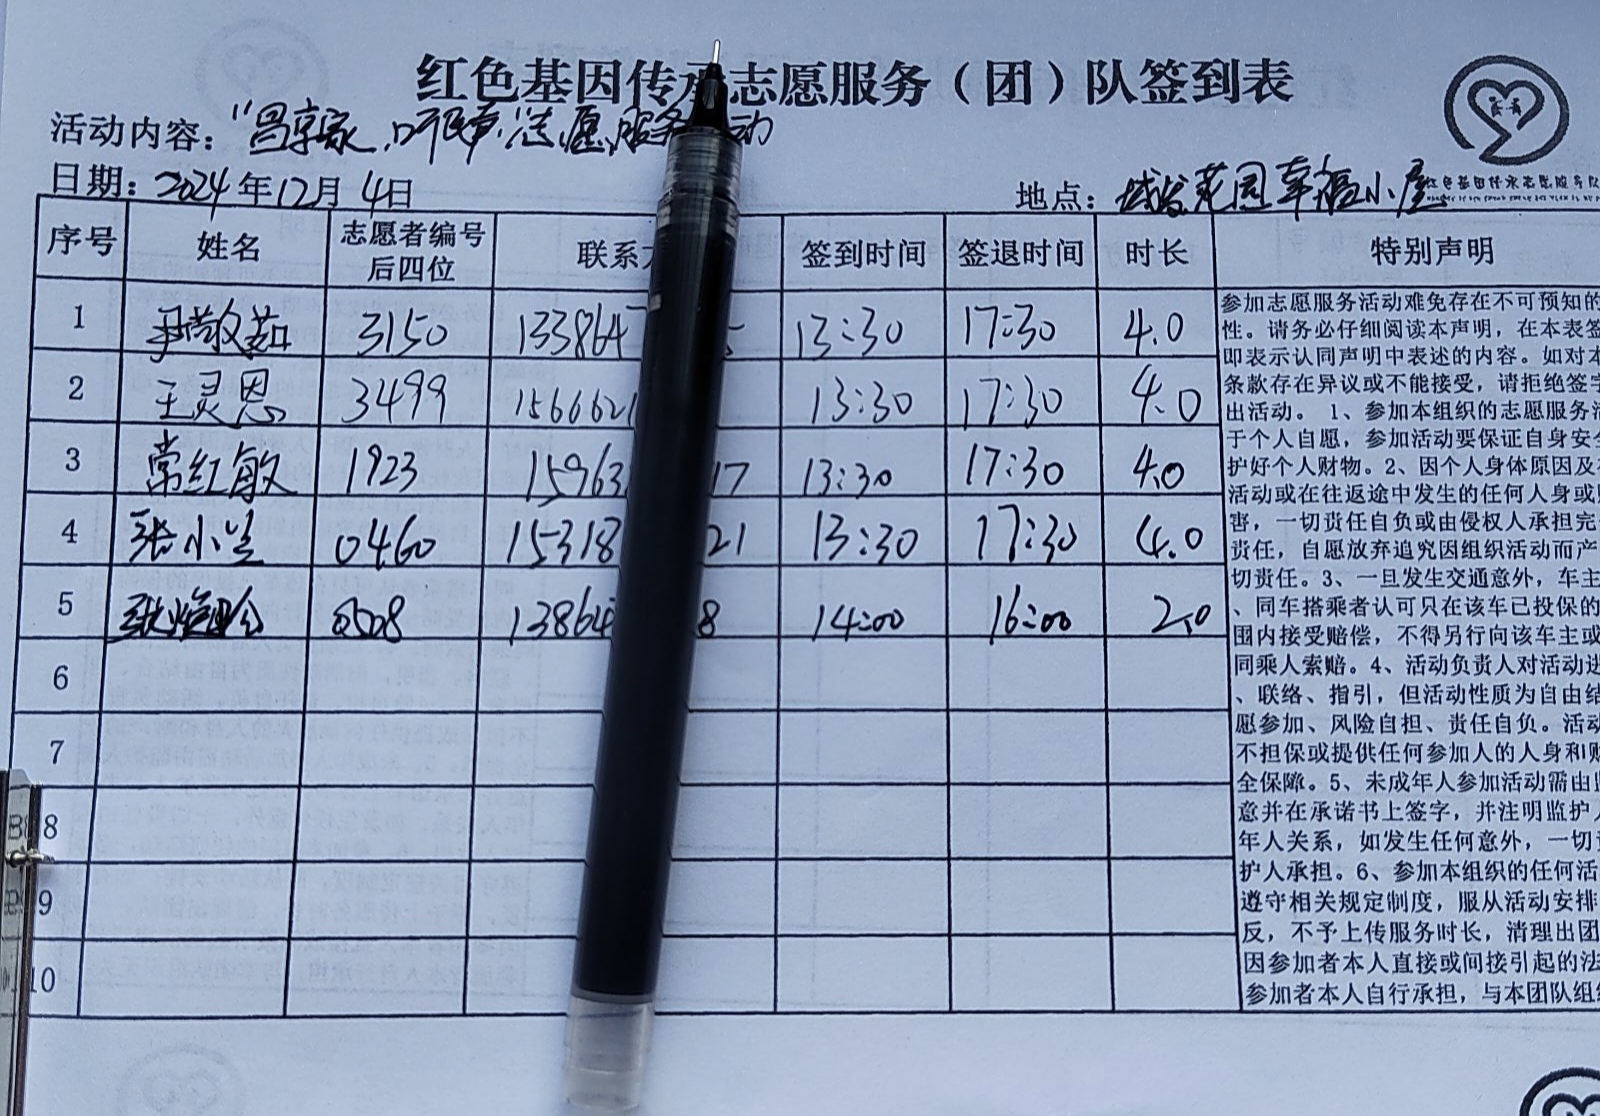 红色基因传承志愿服务（团）队签到表
活动内容："昌享家,听民声"志愿服务 动
日期：2024年12月4日
地点： 花园幸福小屋
序号 姓名 志愿者编号后四位 联系 签到时间 签退时间 时长 特别声明
1 尹敬茹 3150 133864 13:30 17:30 4.0
2 王灵恩 3499 1566621 13:30 17:30 4.0
3 常红敏 1923 15963 17 13:30 17:30 4.0
4 张小兰 0460 15318 21 13:30 17:30 4.0
5 0508 13864 8 14:00 16:00 2.0
6
7
8
9
10
参加志愿服务活动难免存在不可预知的
性。请务必仔细阅读本声明，在本表签
即表示认同声明中表述的内容。如对本
条款存在异议或不能接受，请拒绝签字
出活动。 1、参加本组织的志愿服务活
于个人自愿，参加活动要保证自身安全
护好个人财物。2、因个人身体原因及
活动或在往返途中发生的任何人身或
害，一切责任自负或由侵权人承担完
责任，自愿放弃追究因组织活动而产
切责任。3、一旦发生交通意外，车主
、同车搭乘者认可只在该车已投保的
围内接受赔偿，不得另行向该车主或
同乘人索赔。4、活动负责人对活动进
、联络、指引，但活动性质为自由结
愿参加、风险自担、责任自负。活动
不担保或提供任何参加人的人身和财
全保障。5、未成年人参加活动需由监
意并在承诺书上签字，并注明监护人
年人关系，如发生任何意外，一切责
护人承担。6、参加本组织的任何活
遵守相关规定制度，服从活动安排
反，不予上传服务时长，清理出团
因参加者本人直接或间接引起的法
参加者本人自行承担，与本团队组织